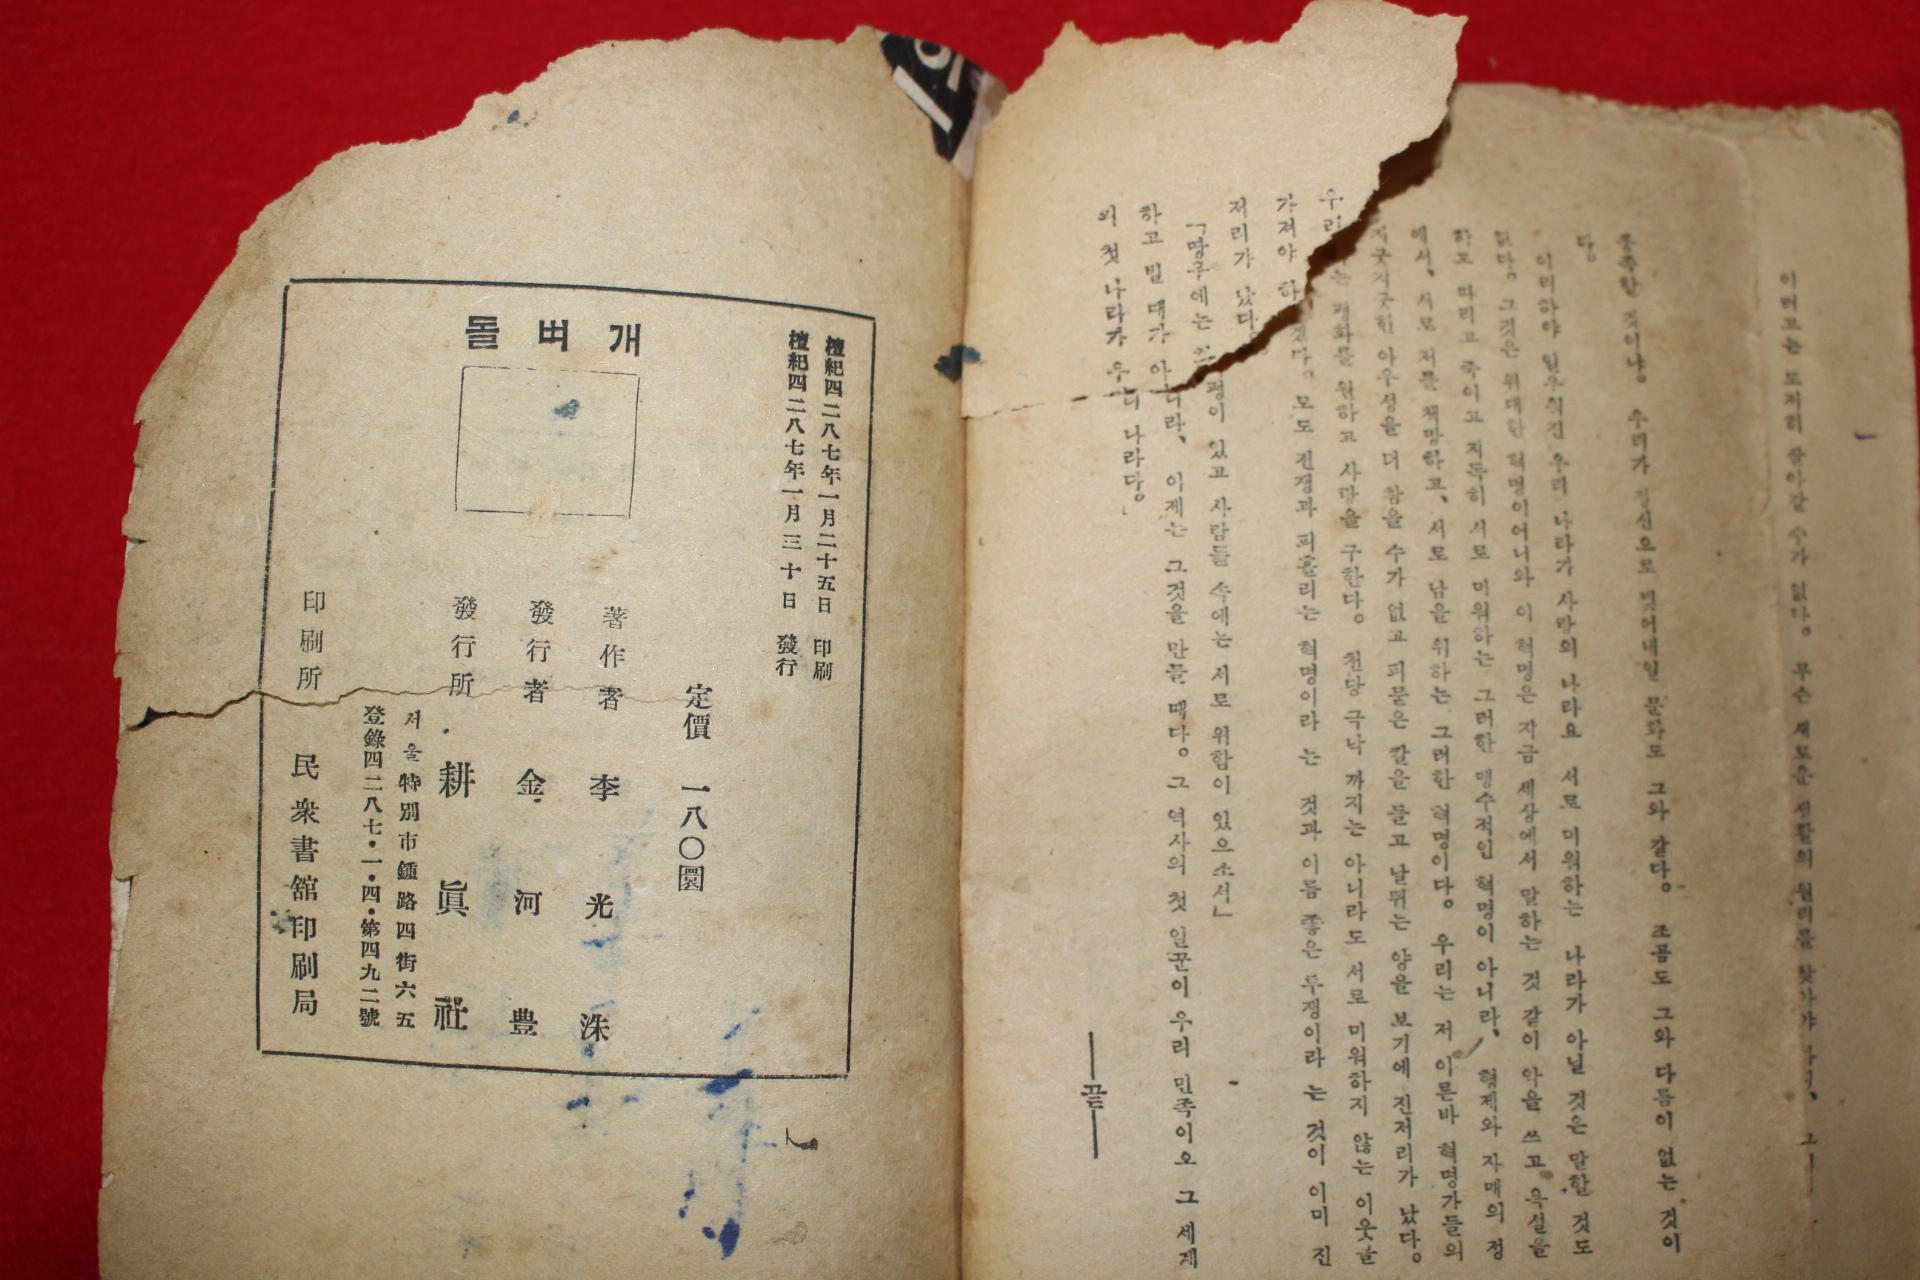 이러고는 도저히 살아갈 수가 없다。 무슨 새로운 생활의 원리를 찾아야
풍족할 것이냐。 우리가 정신으로 빚어내일 문화도 그와 같다。 조곰도 그와 다름이 없는 것이
다。
이리하야 일우워진 우리 나라가 사랑의 나라요 서로 미워하는 나라가 아닐 것은 말할 것도
없다。 그것은 위대한 혁명이어니와 이 혁명은 지금 세상에서 말하는 것 같이 악을 쓰고 욕설을
하고 따리고 죽이고 지독히 서로 미워하는 그러한 맹수적인 혁명이 아니라、 형제와 자매의 정
에서、 서로 저를 책망하고、 서로 남을 위하는 그러한 혁명이다。 우리는 저 이른바 혁명가들의
지긋지긋한 아우성을 더 참을 수가 없고 피묻은 칼을 들고 날뛰는 양을 보기에 진저리가 났다。
우리는 평화를 원하고 사랑을 구한다。 천당 극낙 까지는 아니라도 서로 미워하지 않는 이웃을
가져야 하겠다。 모도 전쟁과 피흘리는 혁명이라 는 것과 이름 좋은 투쟁이라 는 것이 이미 진
저리가 났다。
「땅우에는 평이 있고 사람들 속에는 서로 위함이 있으소서」
하고 빌 때가 아니라、 이제는 그것을 만들 때다。 그 역사의 첫 일꾼이 우리 민족이오 그 세계
의 첫 나라가 우리 나라다。
―끝―
檀紀四二八七年一月二十五日 印刷
檀紀四二八七年一月三十日 發行
돌벼개
定價 一八〇圜
著作者 李光洙
發行者 金河豊
發行所 耕眞社
서울特別市鍾路四街六五
登錄四二八七・一・四・第四九二號
印刷所 民衆書館印刷局